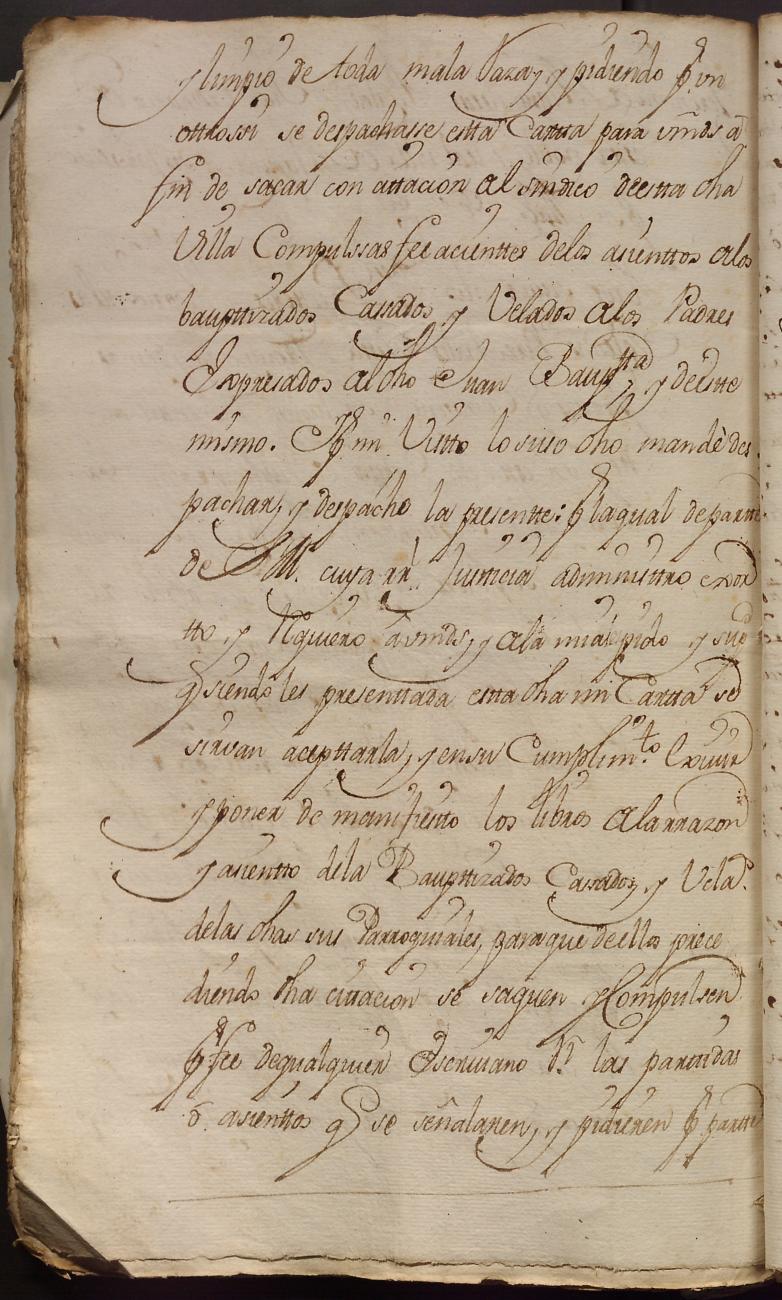 y limpio de toda mala Raza, y pidiendo p.r un
ottrossi se despachasse estta Cartta para vm̃ds a
fin de sacar con cittacion al sindico deestta dha
Villa Compulssas feeacienttes delos asienttos alos
bapttizados Cassados y Velados alos Padres
Expresados al dho Juan Bauptta y deestte
mismo. Y p.r mi Vistto lo suso dho mandè des
pachar, y despacho la presentte: p.r laqual de partte
de S.M. cuya rr.l Justicia administtro exor
tto y Rquiero â vmds, y ala mia pido y supco
q siendoles presenttada estta dha mi Cartta se
sirvan acepttarla, y en su Cumplim.to Exivir
y poner de manifiestto los libros ala rrazon
y asientto dela Bapttizados Cassados, y Velad.s
delas dhas sus Parroquiales, paraque deellos prece
diendo dha cittacion se saquen y Compulsen
p.r fee dequalquier Escrivano R.l las parttidas
ò asienttos q se señalaren, y pidieren p.r partte